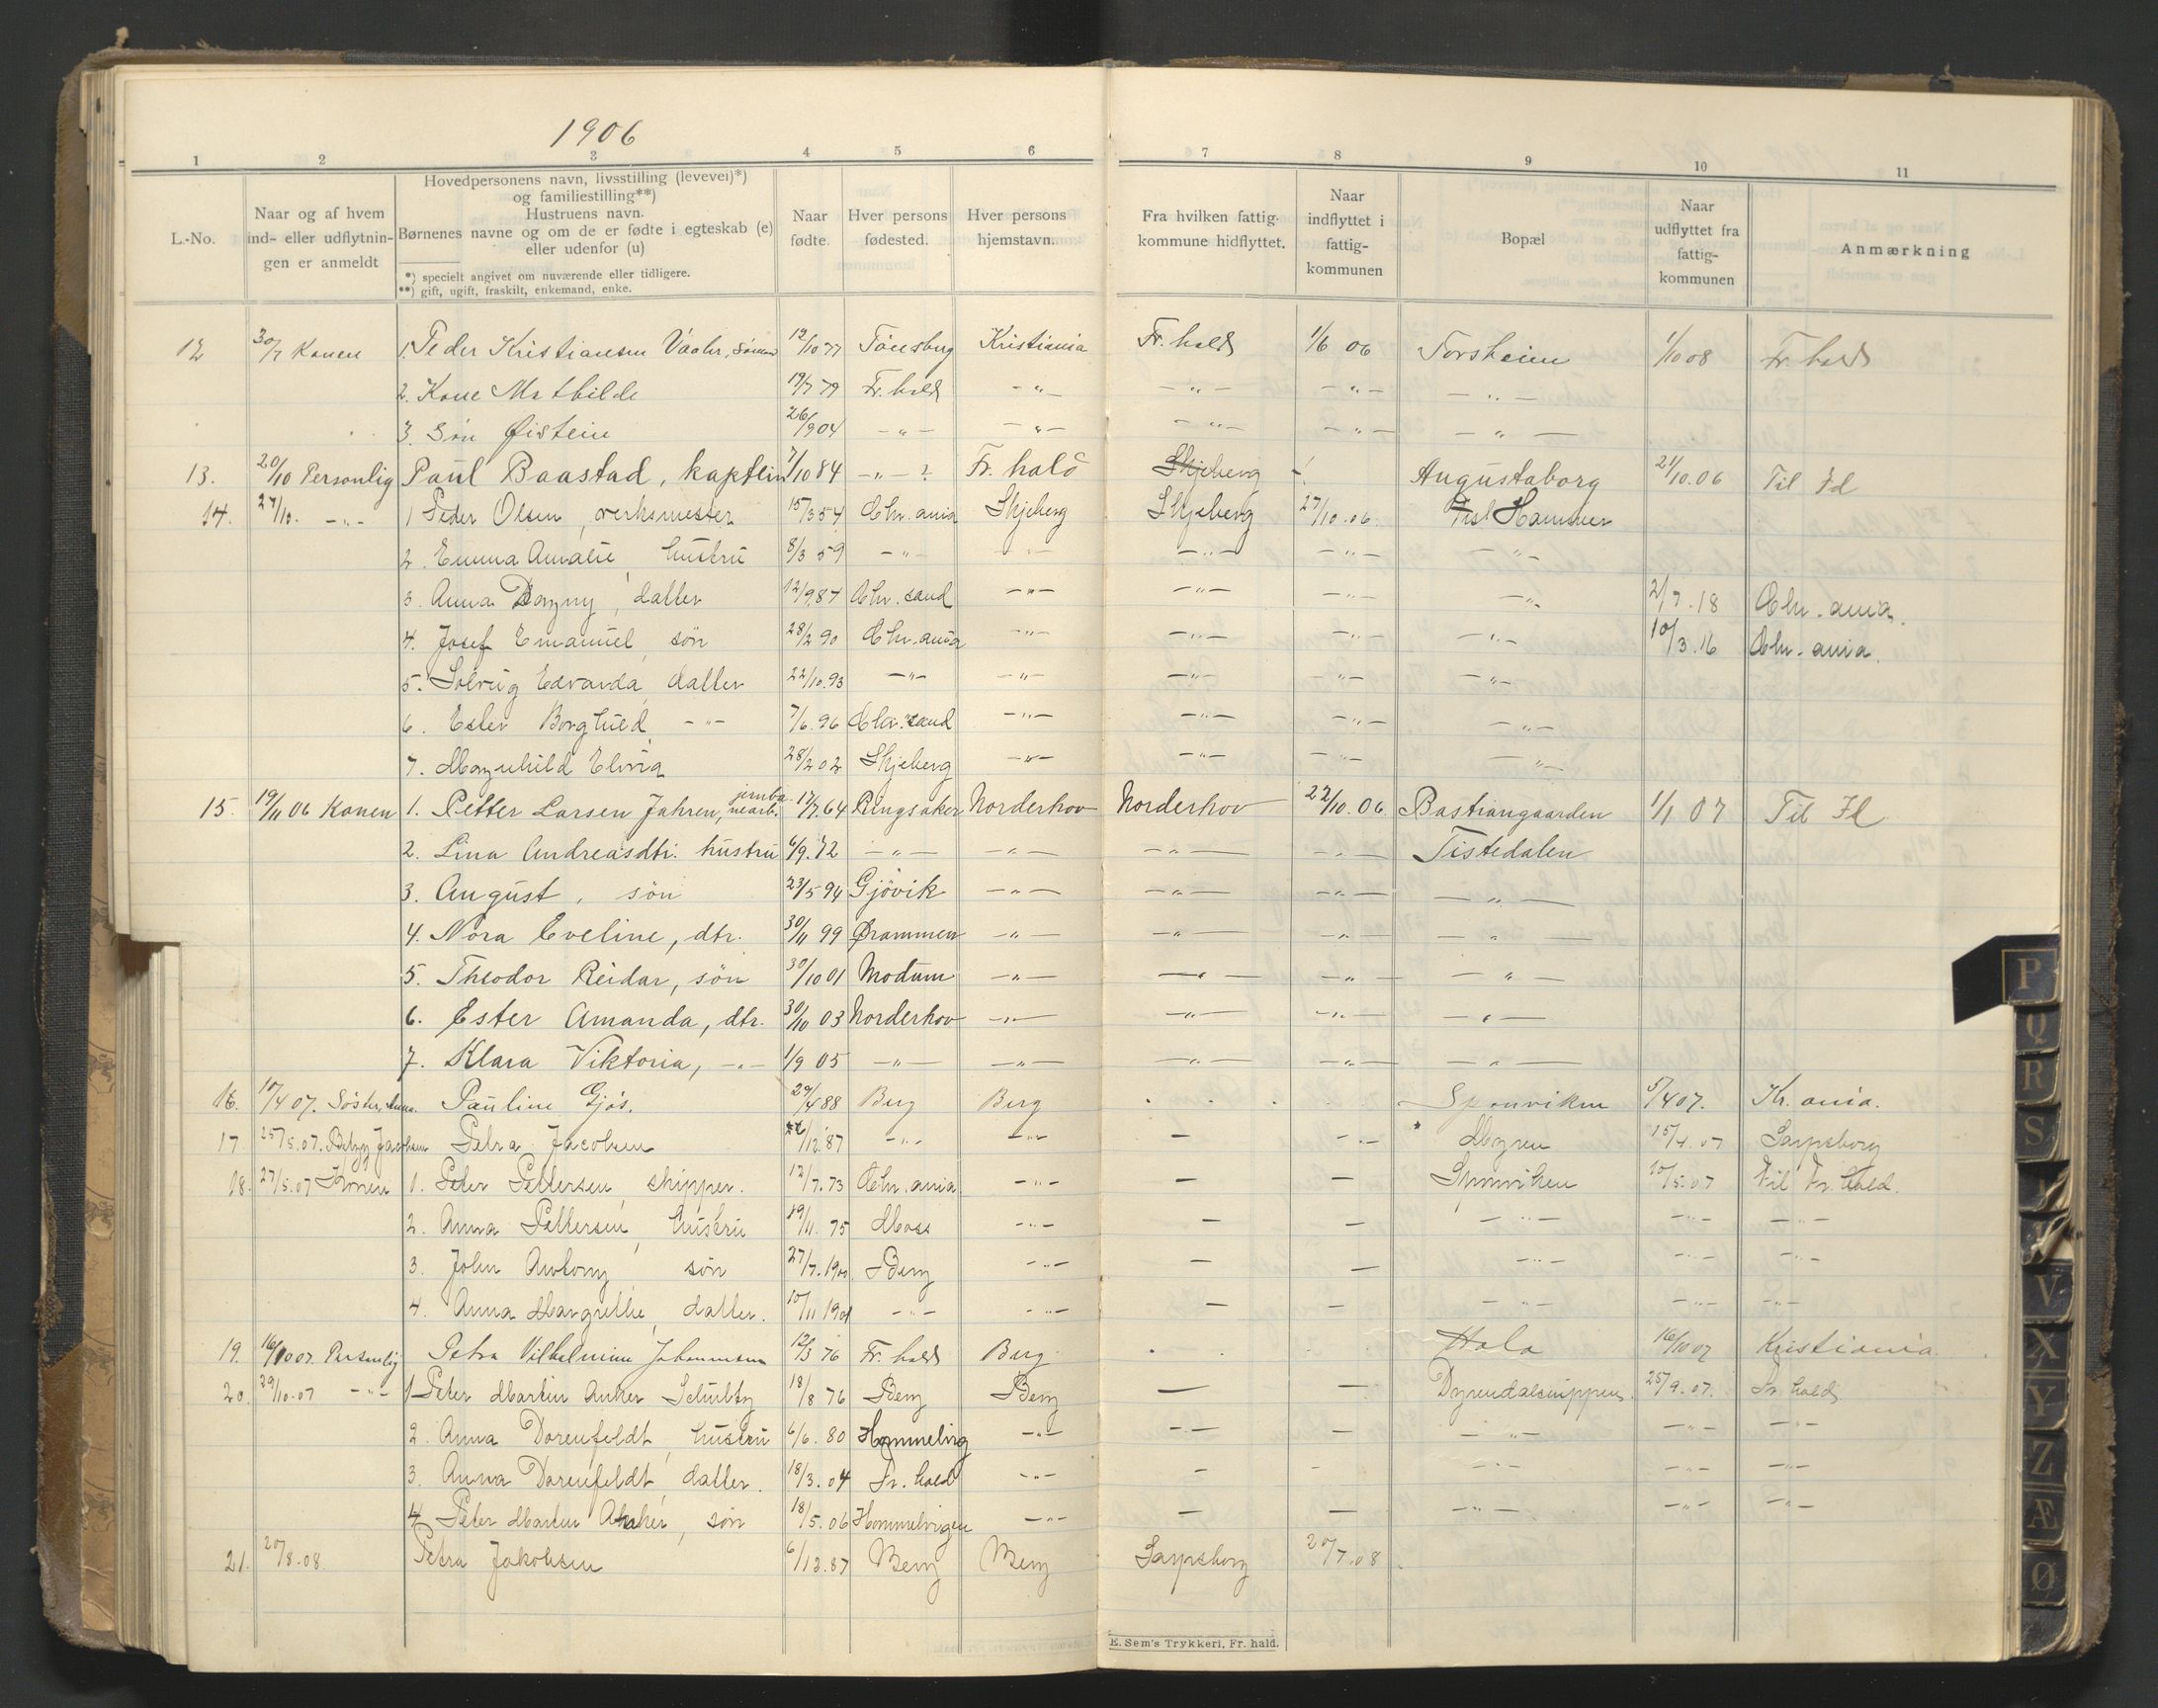 1906
1 2 3 4 5 6 7 8 9 10 11
L.-No.
Naar og af hvem ind- eller udflytningen er anmeldt
Hovedpersonens navn, livsstilling (levevei)*)
og familiestilling**)
Hustruens navn.
Børnenes navne og om de er fødte i egteskab (e)
eller udenfor (u)
*) specielt angivet om nuværende eller tidligere.
**) gift, ugift, fraskilt, enkemand, enke.
Naar fødte.
Hver persons fødested.
Hver persons hjemstavn.
Fra hvilken fattigkommune hidflyttet.
Naar indflyttet i fattigkommunen
Bopæl
Naar udflyttet fra fattigkommunen
Anmærkning
12 30/7 Konen 1. Peder Kristiansen Vaaler, 12/10 77 Tönsberg Kristiania Fr. hald 1/6 06 Torsheim 1/10 08 Fr. hald
2. Kone Mathilde 19/7 79 Fr. hald -"- -"- -"- -"-
3. Sön Øistein 26/9 04 -"- -"- -"- -"- -"-
13. 20/10 Personlig Paul Baastad, kaptein 7/10 84 -"- ? Fr. hald Skjeberg Augustaborg 21/10.06 Til Id
14. 27/10. -"- 1 Peder Olsen, verksmester 15/3 54 Chr. ania Skjeberg Skjeberg 27/10.06. Hammer
2. Emma Amalie, hustru 8/3 59 -"- -"- -"- -"- -"-
3. Anna Dagny, datter 12/9 87 Chr. sand -"- -"- -"- -"- 2/7.18 Chr. ania.
4. Josef Emanuel, sön 28/2 90 Chr. ania -"- -"- -"- -"- 10/3.16 Chr. ania.
5. Solveig Edvarda, datter 22/10.93 -"- -"- -"- -"- -"-
6. Ester Borghild, -"- 7/6.96 Chr. sand -"- -"- -"- -"-
7. Magnhild Elvira 28/2 02 Skjeberg -"- -"- -"- -"-
15. 19/11 06 Konen 1. Petter Larsen Jahren, jernbanearb. 17/7.64 Ringsaker Norderhov Norderhov 22/10.06. Bastiangaarden 1/1 07 Til Id
2. Lina Andreasdtr. hustru 6/9.72 -"- -"- -"- -"- Tistedalen
3. August, sön 23/5 94 Gjövik -"- -"- -"- -"-
4. Nora Eveline, dtr. 30/11 99 Drammen -"- -"- -"- -"-
5. Theodor Reidar, sön 30/10 01 Modum -"- -"- -"- -"-
6. Ester Amanda, dtr. 30/10 03 Norderhov -"- -"- -"- -"-
7. Klara Viktoria, -"- 1/9 05 -"- -"- -"- -"- -"-
16. 10/4 07. Söster, Pauline Gjös. 29/4 88 Berg Berg Sponviken 5/4 07. Kr. ania.
17. 25/5.07. Betzy Jacobsen Petra Jacobsen /12.87 -"- -"- - -"- Myren 15/4.07 Sarpsborg
18. 27/5.07 Konen 1. Peter Pettersen, skipper. 12/7.73 Chr. ania -"- - - Sponviken 10/5.07 Til Fr. hald.
2. Anna Pettersen, hustru 19/11.75 Moss -"- - - -"- -"- -"-
3. John Anthony, sön 27/7.1900. Berg -"- - - -"- -"- -"-
4. Anna Margrethe, datter. 10/11 1901 -"- -"- - - -"- -"- -"-
19. 16/10 07. Personlig Petra Vilhelmine Johannesen 12/3 76 Fr. hald Berg Hola 16/10 07 Kristiania.
20. 29/10.07 -"- 1 Peter Martin Anker Schultz 18/8 76 Berg Berg - - 25/9.07. Fr. hald
2. Anna Dorenfeldt, hustru 6/6.80 Hommelvig -"- -"- - -"- -"- -"-
3. Anna Dorenfeldt, datter. 18/3.04 Fr. hald -"- - - -"- -"- -"-
4. Peter Martin Anker, sön 18/5.06 Hommelvigen -"- - - -"- -"- -"-
21. 20/8.08. Petra Jakobsen 6/12.87 Berg Berg Sarpsborg 20/7.08.
E. Sem's Trykkeri, Fr. hald.
P
Q
R
S
V
X
Y
Z
Æ
Ø